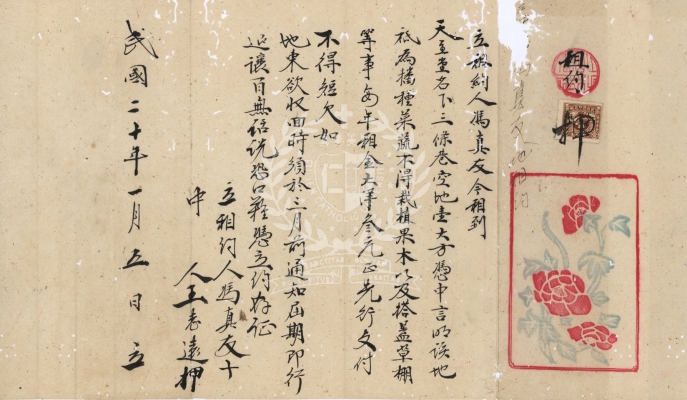 租約
押
立租約人馮真友今租到
天主堂名下三條巷空地壹大方憑中言明該地
祗為播種菜蔬不得栽植果木以及搭蓋草棚
等事每年租金大洋叁元正先行交付
不得短欠如
地東欲收回時須於三月前通知屆期即行
退讓百無話說恐口難憑立約存証
立租約人馮真友十
中人王志遠押
民國二十年一月五日立